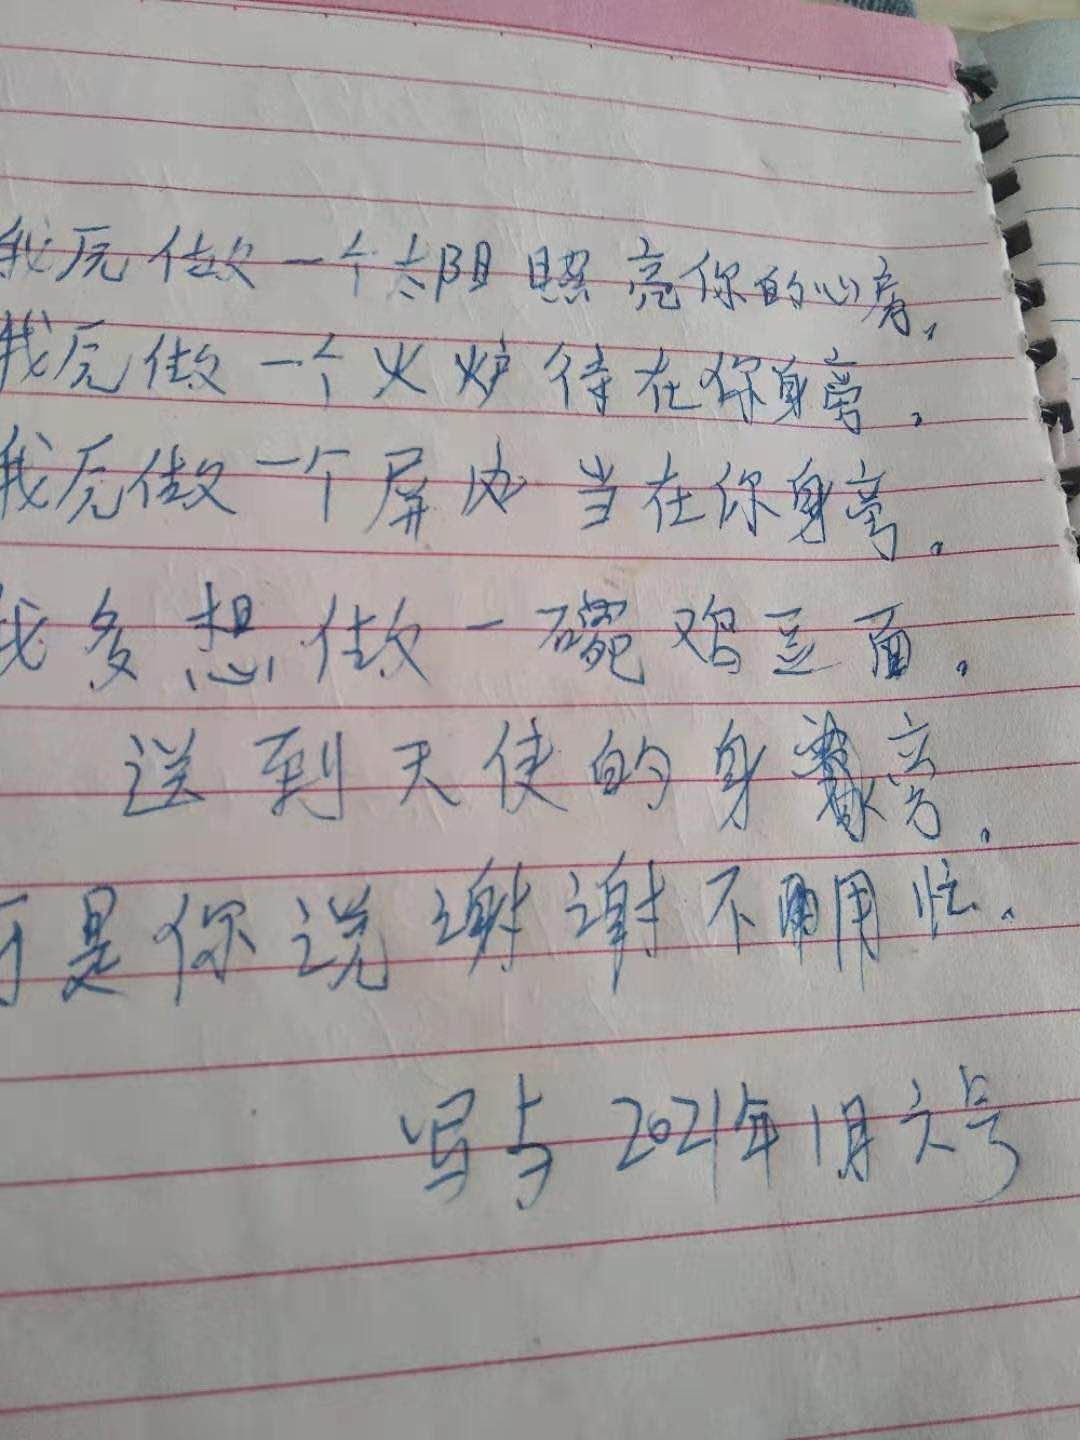 我愿做一个太阳照亮你的心房,
我愿做一个火炉待在你身旁,
我愿做一个屏风当在你身旁。
我多想做一碗鸡蛋面,
送到天使的身旁,
可是你说谢谢不用忙。
写与2021年1月六号